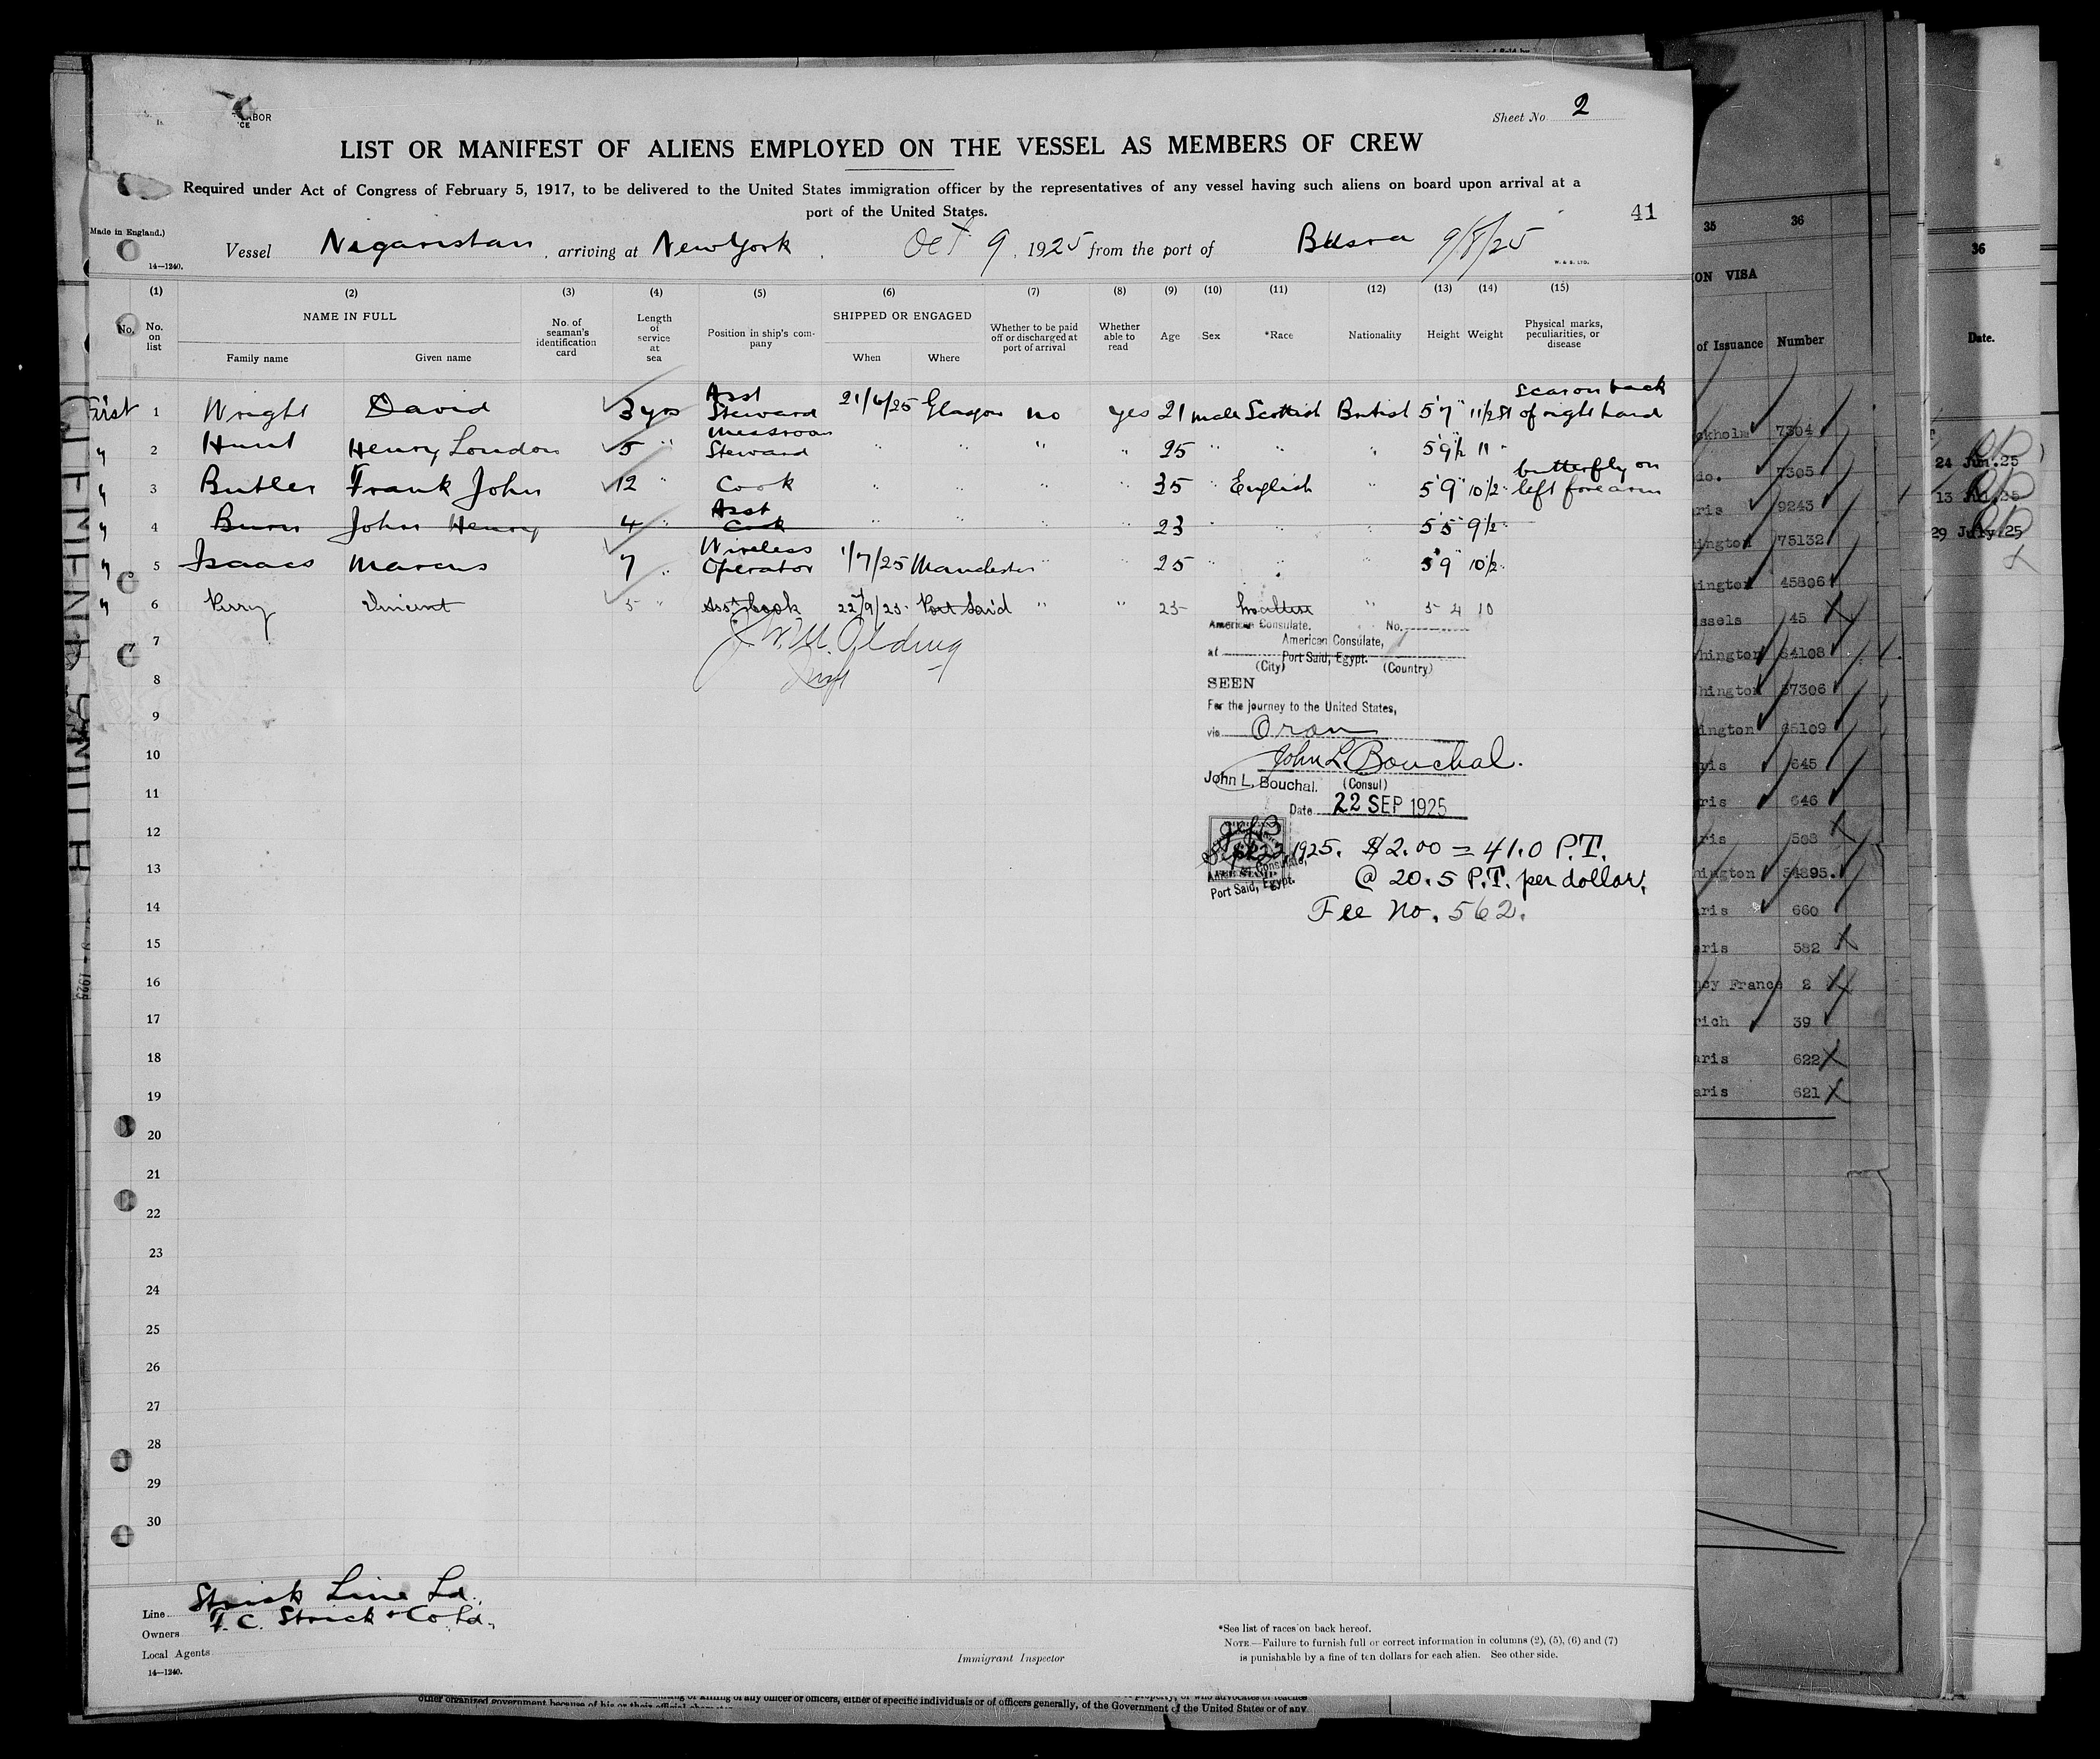 LABOR
CE
Sheet No. 2
LIST OR MANIFEST OF ALIENS EMPLOYED ON THE VESSEL AS MEMBERS OF CREW
Required under Act of Congress of February 5, 1917, to be delivered to the United States immigration officer by the representatives of any vessel having such aliens on board upon arrival at a
port of the United States.
41
Made in England.)
Vessel Nigaristan, arriving at New York Oct 9, 1925 from the port of Busra 9/8/25
14—1240.
W. & S. LTD.
(1) (2) (3) (4) (5) (6) (7) (8) (9) (10) (11) (12) (13) (14) (15)
No. No. on list NAME IN FULL Family name Given name No. of seaman's identification card Length of service at sea Position in ship's company SHIPPED OR ENGAGED When Where Whether to be paid off or discharged at port of arrival Whether able to read Age Sex *Race Nationality Height Weight Physical marks, peculiarities, or disease
First 1 Wright David 3 yrs Asst Steward 21/6/25 Glasgow no yes 21 male Scottish British 5'7" 11/2 St Scar on back of right hand
" 2 Hunt Henry London 5 " Messroom Steward " " " " 25 " " " 5'9½ 11 "
" 3 Butler Frank John 12 " Cook " " " " 35 " English " 5'9" 10½ " butterfly on left forearm
" 4 Burn John Henry 4 " Asst Cook " " " " 23 " " " 5'5" 9½ "
" 5 Isaacs Marcus 7 " Wireless Operator 1/7/25 Manchester " " 25 " " " 5'9" 10½ "
" 6 Perry Vincent 5 " Asst Cook 22/9/25 Port Said " " 25 " 5 4 10
7
8
9
10
11
12
13
14
15
16
17
18
19
20
21
22
23
24
25
26
27
28
29
30
American Consulate. No.
American Consulate,
at Port Said, Egypt.
(City) (Country)
SEEN
For the journey to the United States,
via Oran
John L. Bouchal.
John L. Bouchal. (Consul)
Date 22 SEP 1925
Sept 22, 1925. $2.00 = 41.0 P.T.
@ 20.5 P.T. per dollar.
Fee No. 562.
American Consulate,
Port Said, Egypt.
Line Strick Line Ld.
Owners F. C. Strick & Co Ld.
Local Agents
14—1240.
Immigrant Inspector
*See list of races on back hereof.
NOTE.—Failure to furnish full or correct information in columns (2), (5), (6) and (7)
is punishable by a fine of ten dollars for each alien. See other side.
other organized government because of his or their official character
killing of any officer or officers, either of specific individuals or of officers generally, of the Government of the United States or of any
35 36
ON VISA
of Issuance Number
7304
7305
9243
75132
45806
45
64108
57306
65109
645
646
508
54895.
660
582
France 2
39
622
621
36
Date.
24 Jun. 25
29 July 25